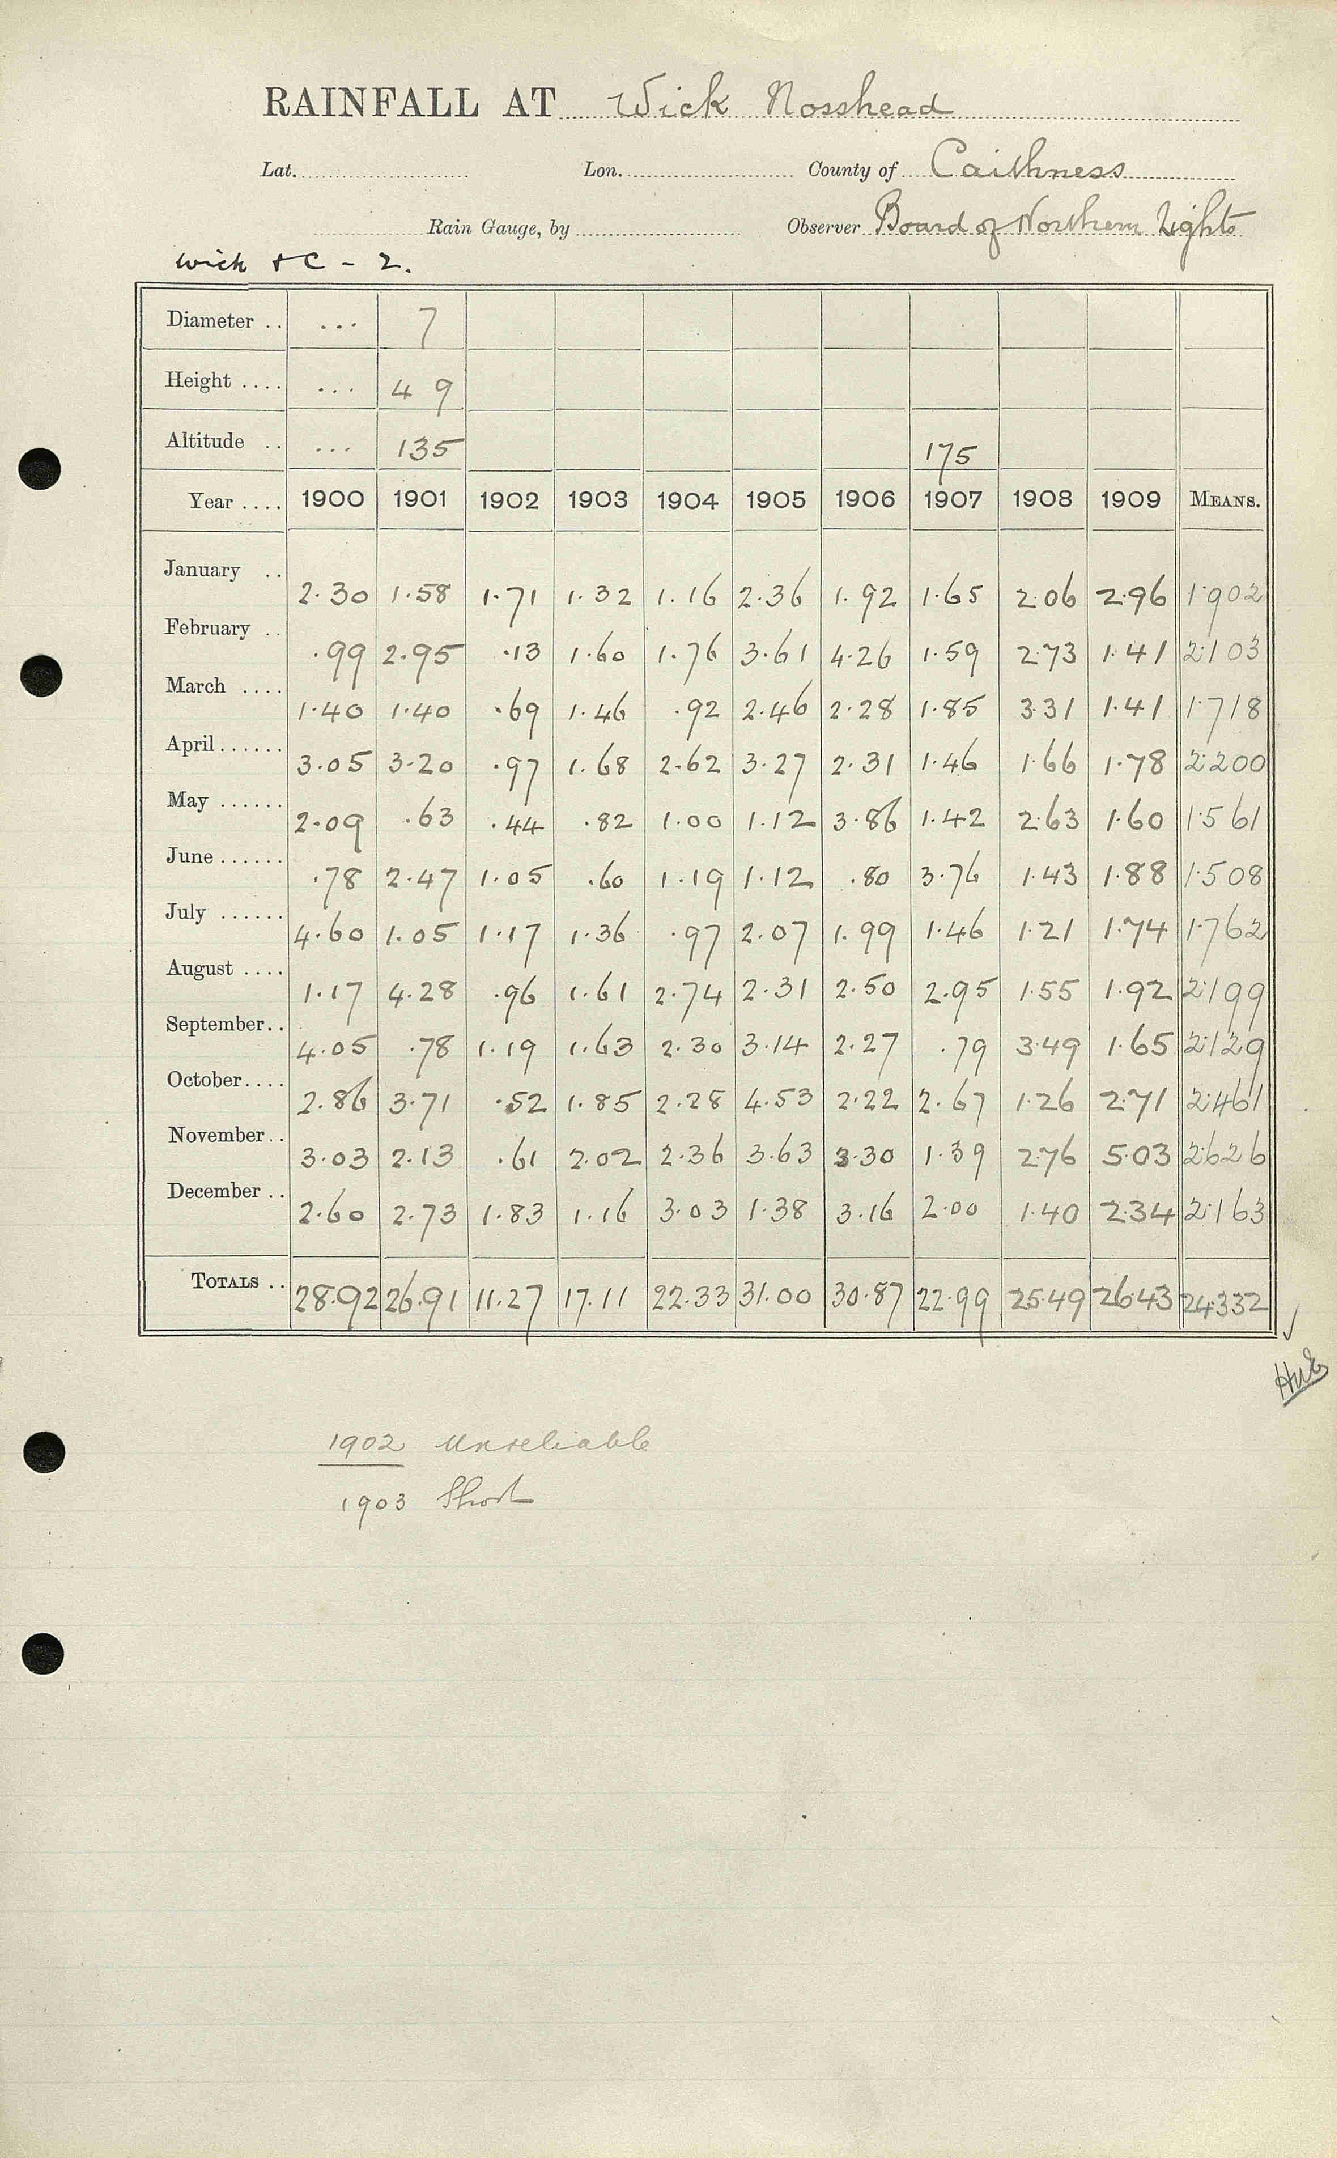 RAINFALL AT Wick Nosshead
Lat. Lon. County of Caithness
Rain Gauge, by Observer Board of Northern Lights
Wick + C - 2.
Diameter .. ... 7
Height .... ... 4 9
Altitude .. ... 135 175
Year .... 1900 1901 1902 1903 1904 1905 1906 1907 1908 1909 MEANS.
January .. 2.30 1.58 1.71 1.32 1.16 2.36 1.92 1.65 2.06 2.96 1.902
February .. .99 2.95 .13 1.60 1.76 3.61 4.26 1.59 2.73 1.41 2.103
March .... 1.40 1.40 .69 1.46 .92 2.46 2.28 1.85 3.31 1.41 1.718
April ...... 3.05 3.20 .97 1.68 2.62 3.27 2.31 1.46 1.66 1.78 2.200
May ...... 2.09 .63 .44 .82 1.00 1.12 3.86 1.42 2.63 1.60 1.561
June ...... .78 2.47 1.05 .60 1.19 1.12 .80 3.76 1.43 1.88 1.508
July ...... 4.60 1.05 1.17 1.36 .97 2.07 1.99 1.46 1.21 1.74 1.762
August .... 1.17 4.28 .96 1.61 2.74 2.31 2.50 2.95 1.55 1.92 2.199
September .. 4.05 .78 1.19 1.63 2.30 3.14 2.27 .79 3.49 1.65 2.129
October .... 2.86 3.71 .52 1.85 2.28 4.53 2.22 2.67 1.26 2.71 2.461
November .. 3.03 2.13 .61 2.02 2.36 3.63 3.30 1.39 2.76 5.03 2.626
December .. 2.60 2.73 1.83 1.16 3.03 1.38 3.16 2.00 1.40 2.34 2.163
TOTALS .. 28.92 26.91 11.27 17.11 22.33 31.00 30.87 22.99 25.49 26.43 24.332 ✓
1902 Unreliable
1903 Short